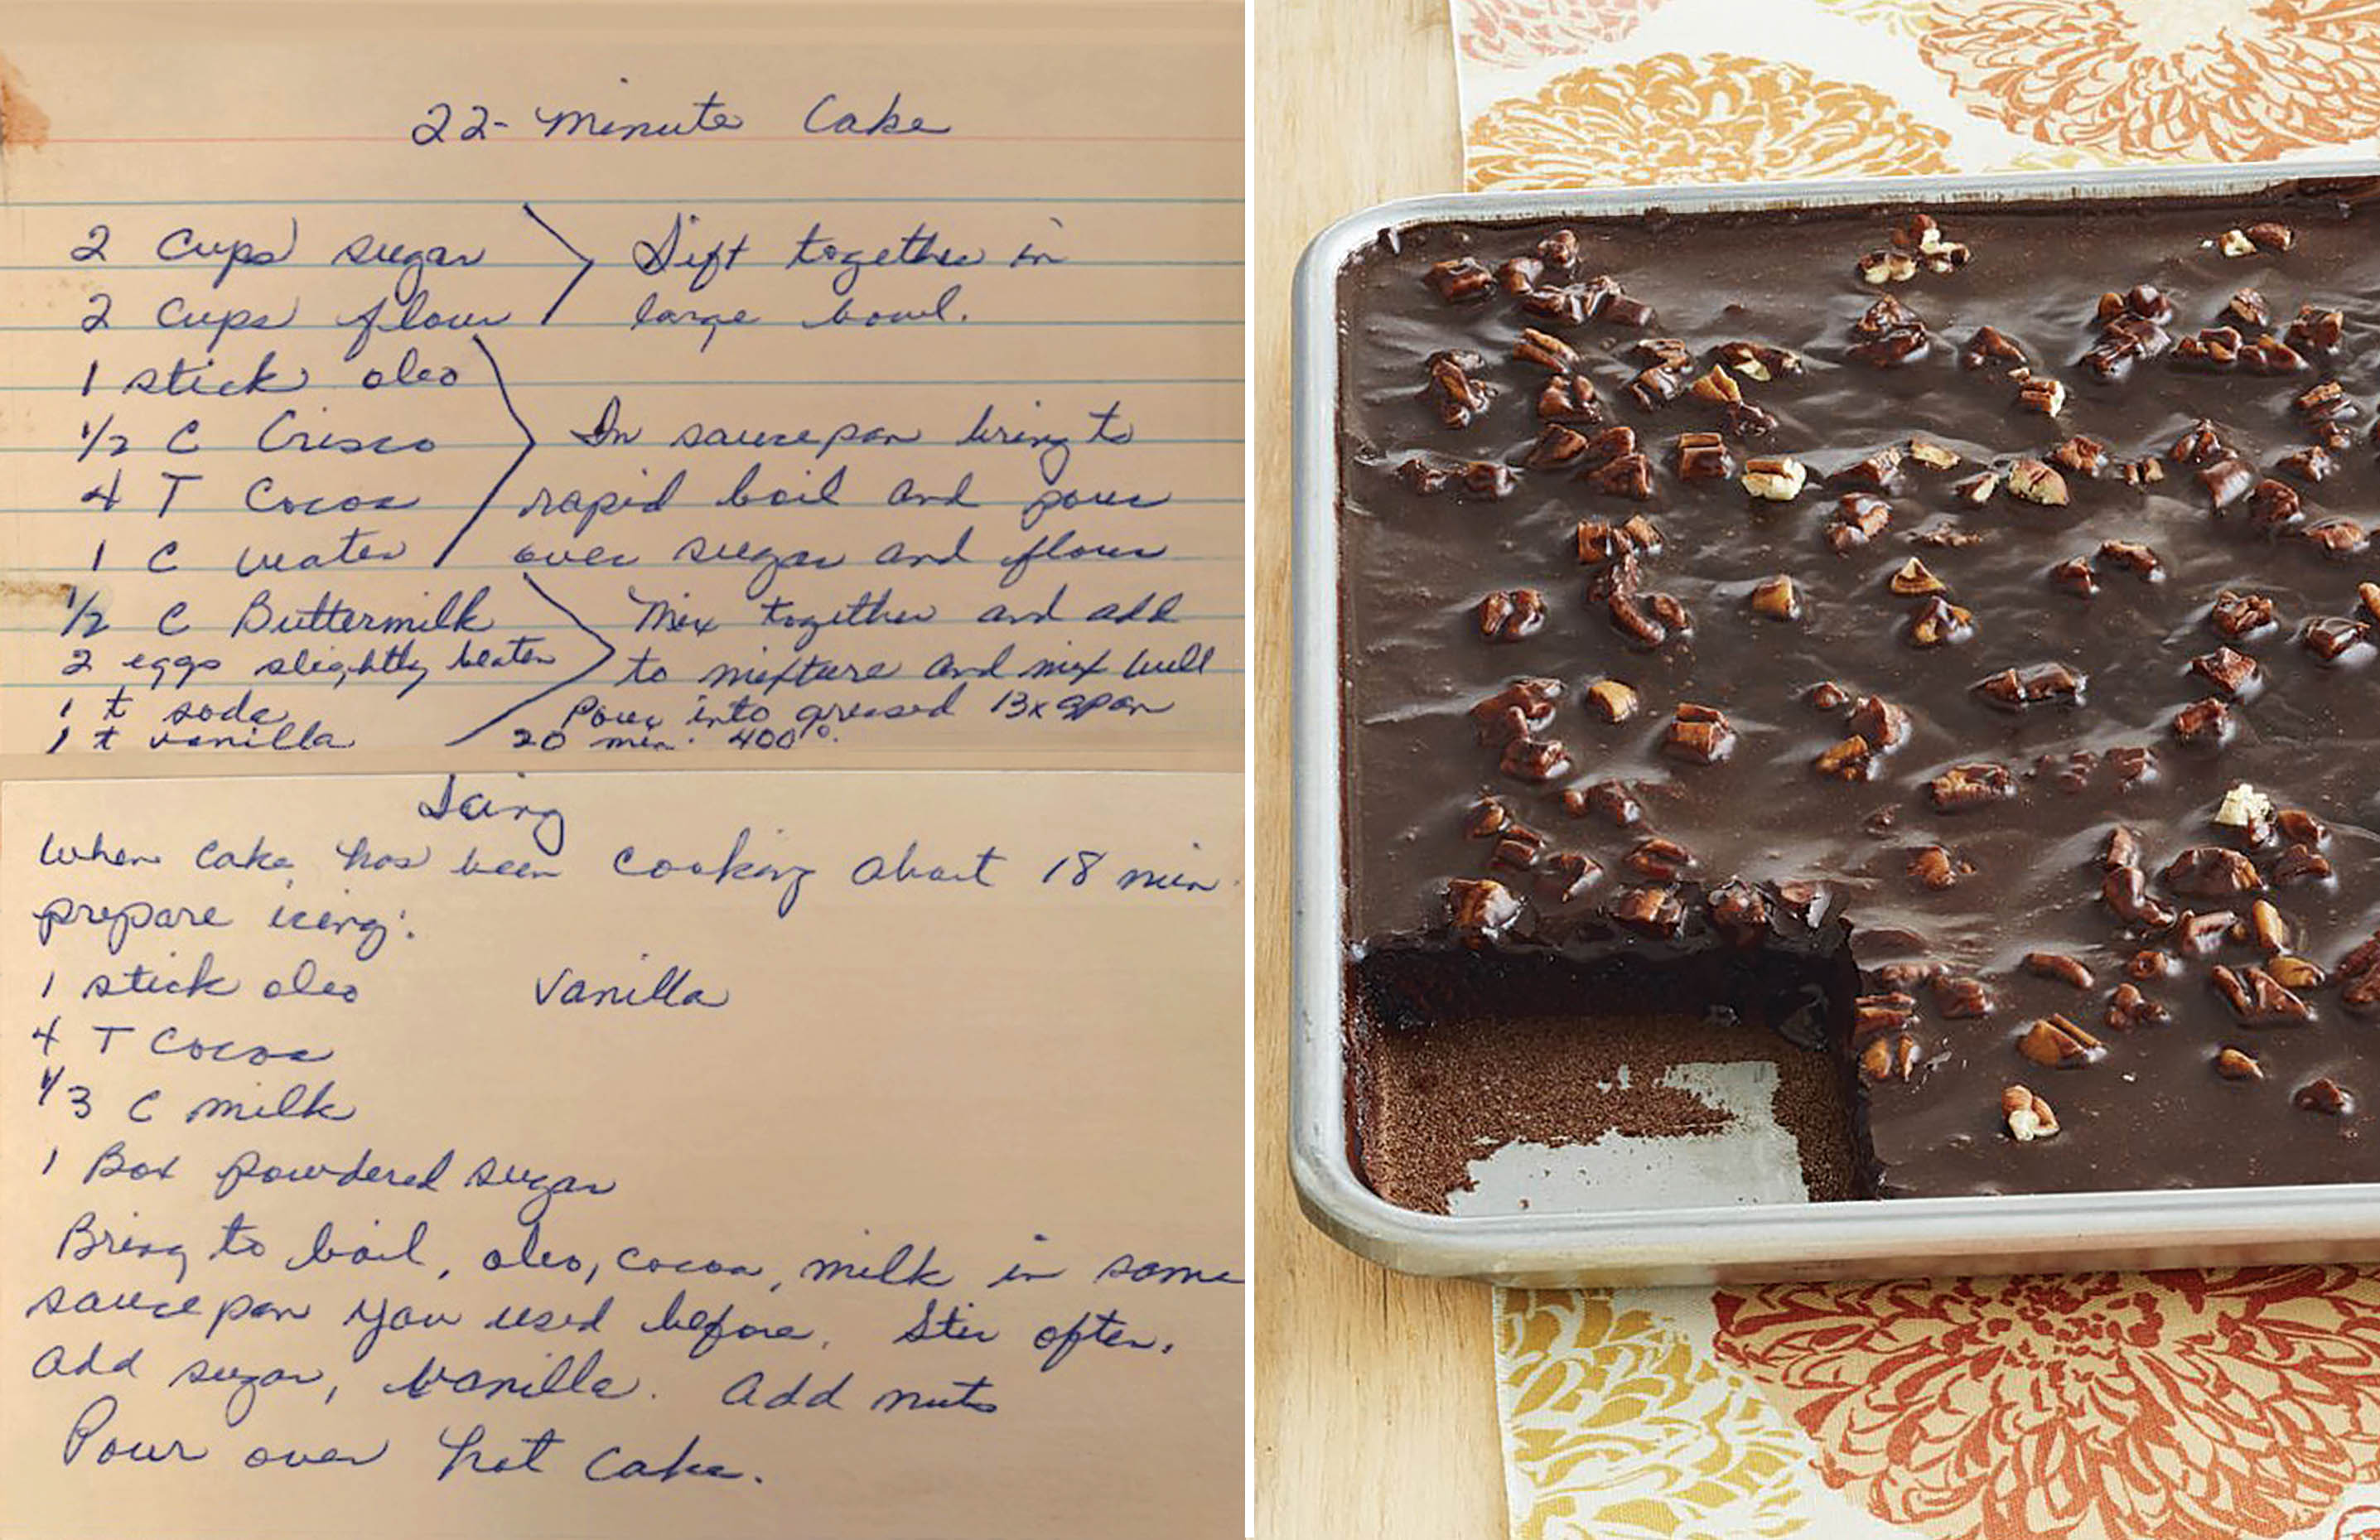 22-Minute Cake
2 Cups sugar
2 Cups flour
Sift together in
large bowl.
1 stick oleo
1/2 C Crisco
4 T Cocoa
1 C water
In saucepan bring to
rapid boil and pour
over sugar and flour
1/2 C Buttermilk
2 eggs slightly beaten
1 t soda
1 t vanilla
Mix together and add
to mixture and mix well
Pour into greased 13x9pan
20 min. 400°.
Icing
When cake has been cooking about 18 min
prepare icing:
1 stick oleo
Vanilla
4 T Cocoa
1/3 C milk
1 Box powdered sugar
Bring to boil, oleo, cocoa, milk in same
saucepan you used before. Stir often.
Add sugar, vanilla. Add nuts
Pour over hot cake.